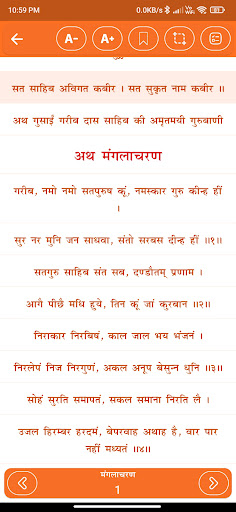 10:59 PM 0.0KB/s
A- A+
सत साहिब अविगत कबीर । सत सुकृत नाम कबीर ॥
अथ गुसाईं गरीब दास साहिब की अमृतमयी गुरुवाणी
अथ मंगलाचरण
गरीब, नमो नमो सतपुरुष कूं, नमस्कार गुरु कीन्ह हीं
।
सुर नर मुनि जन साधवा, संतो सरबस दीन्ह हीं ॥१॥
सतगुरु साहिब संत सब, दण्डौतम् प्रणाम ।
आगै पीछै मधि हुये, तिन कूं जां कुरबान ॥२॥
निराकार निरबिषं, काल जाल भय भंजनं ।
निरलेपं निज निरगुणं, अकल अनूप बेसुन्न धुनि ॥३॥
सोहं सुरति समापतं, सकल समाना निरति लै ।
उजल हिरम्बर हरदमं, बेपरवाह अथाह है, वार पार
नहीं मध्यतं ॥४॥
मंगलाचरण
1